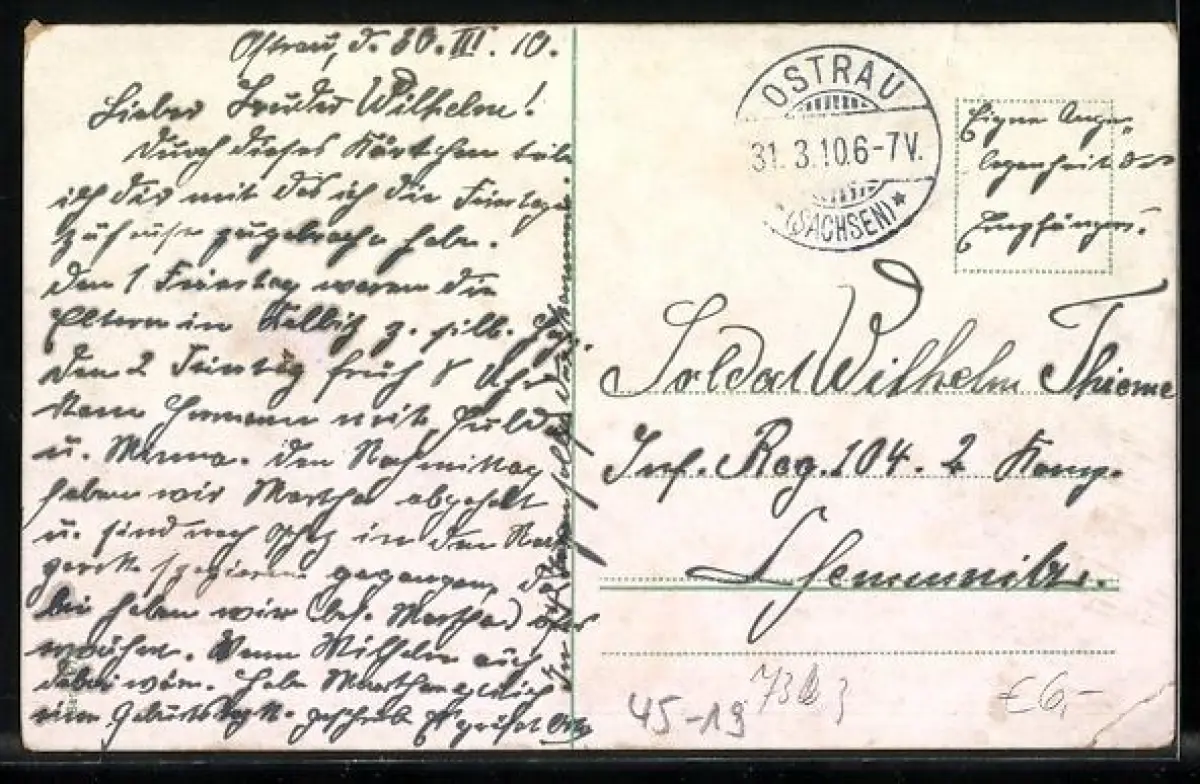 Ostrau, d. 30. III. 10.
Lieber Bruder Wilhelm!
Durch dieses Kärtchen teile
ich dir mit das ich die Feiertage
zu hause zugebracht habe.
Den 1 Feiertag waren die
Eltern in z. silb.
Den 2 Feiertag früh 8 Uhr
kam Hermann mit Hulda
u. Minna. Den Nachmittag
haben wir Martha abgeholt
u. sind nach in den
spazieren gegangen, da
bei haben wir (bes. Martha) öfters
Wenn Wilhelm auch
dabei wär. Habe Marthan gleich
eine Geburtstagsk. geschickt Es grüßet
OSTRAU
31. 3. 10. 6-7 V.
(SACHSEN) *
Eigne Ange-
legenheit des
Empfängers.
Soldat Wilhelm Thieme
Inf. Reg. 104. 2 Komp.
Chemnitz.
45-19
73
€ 6,-